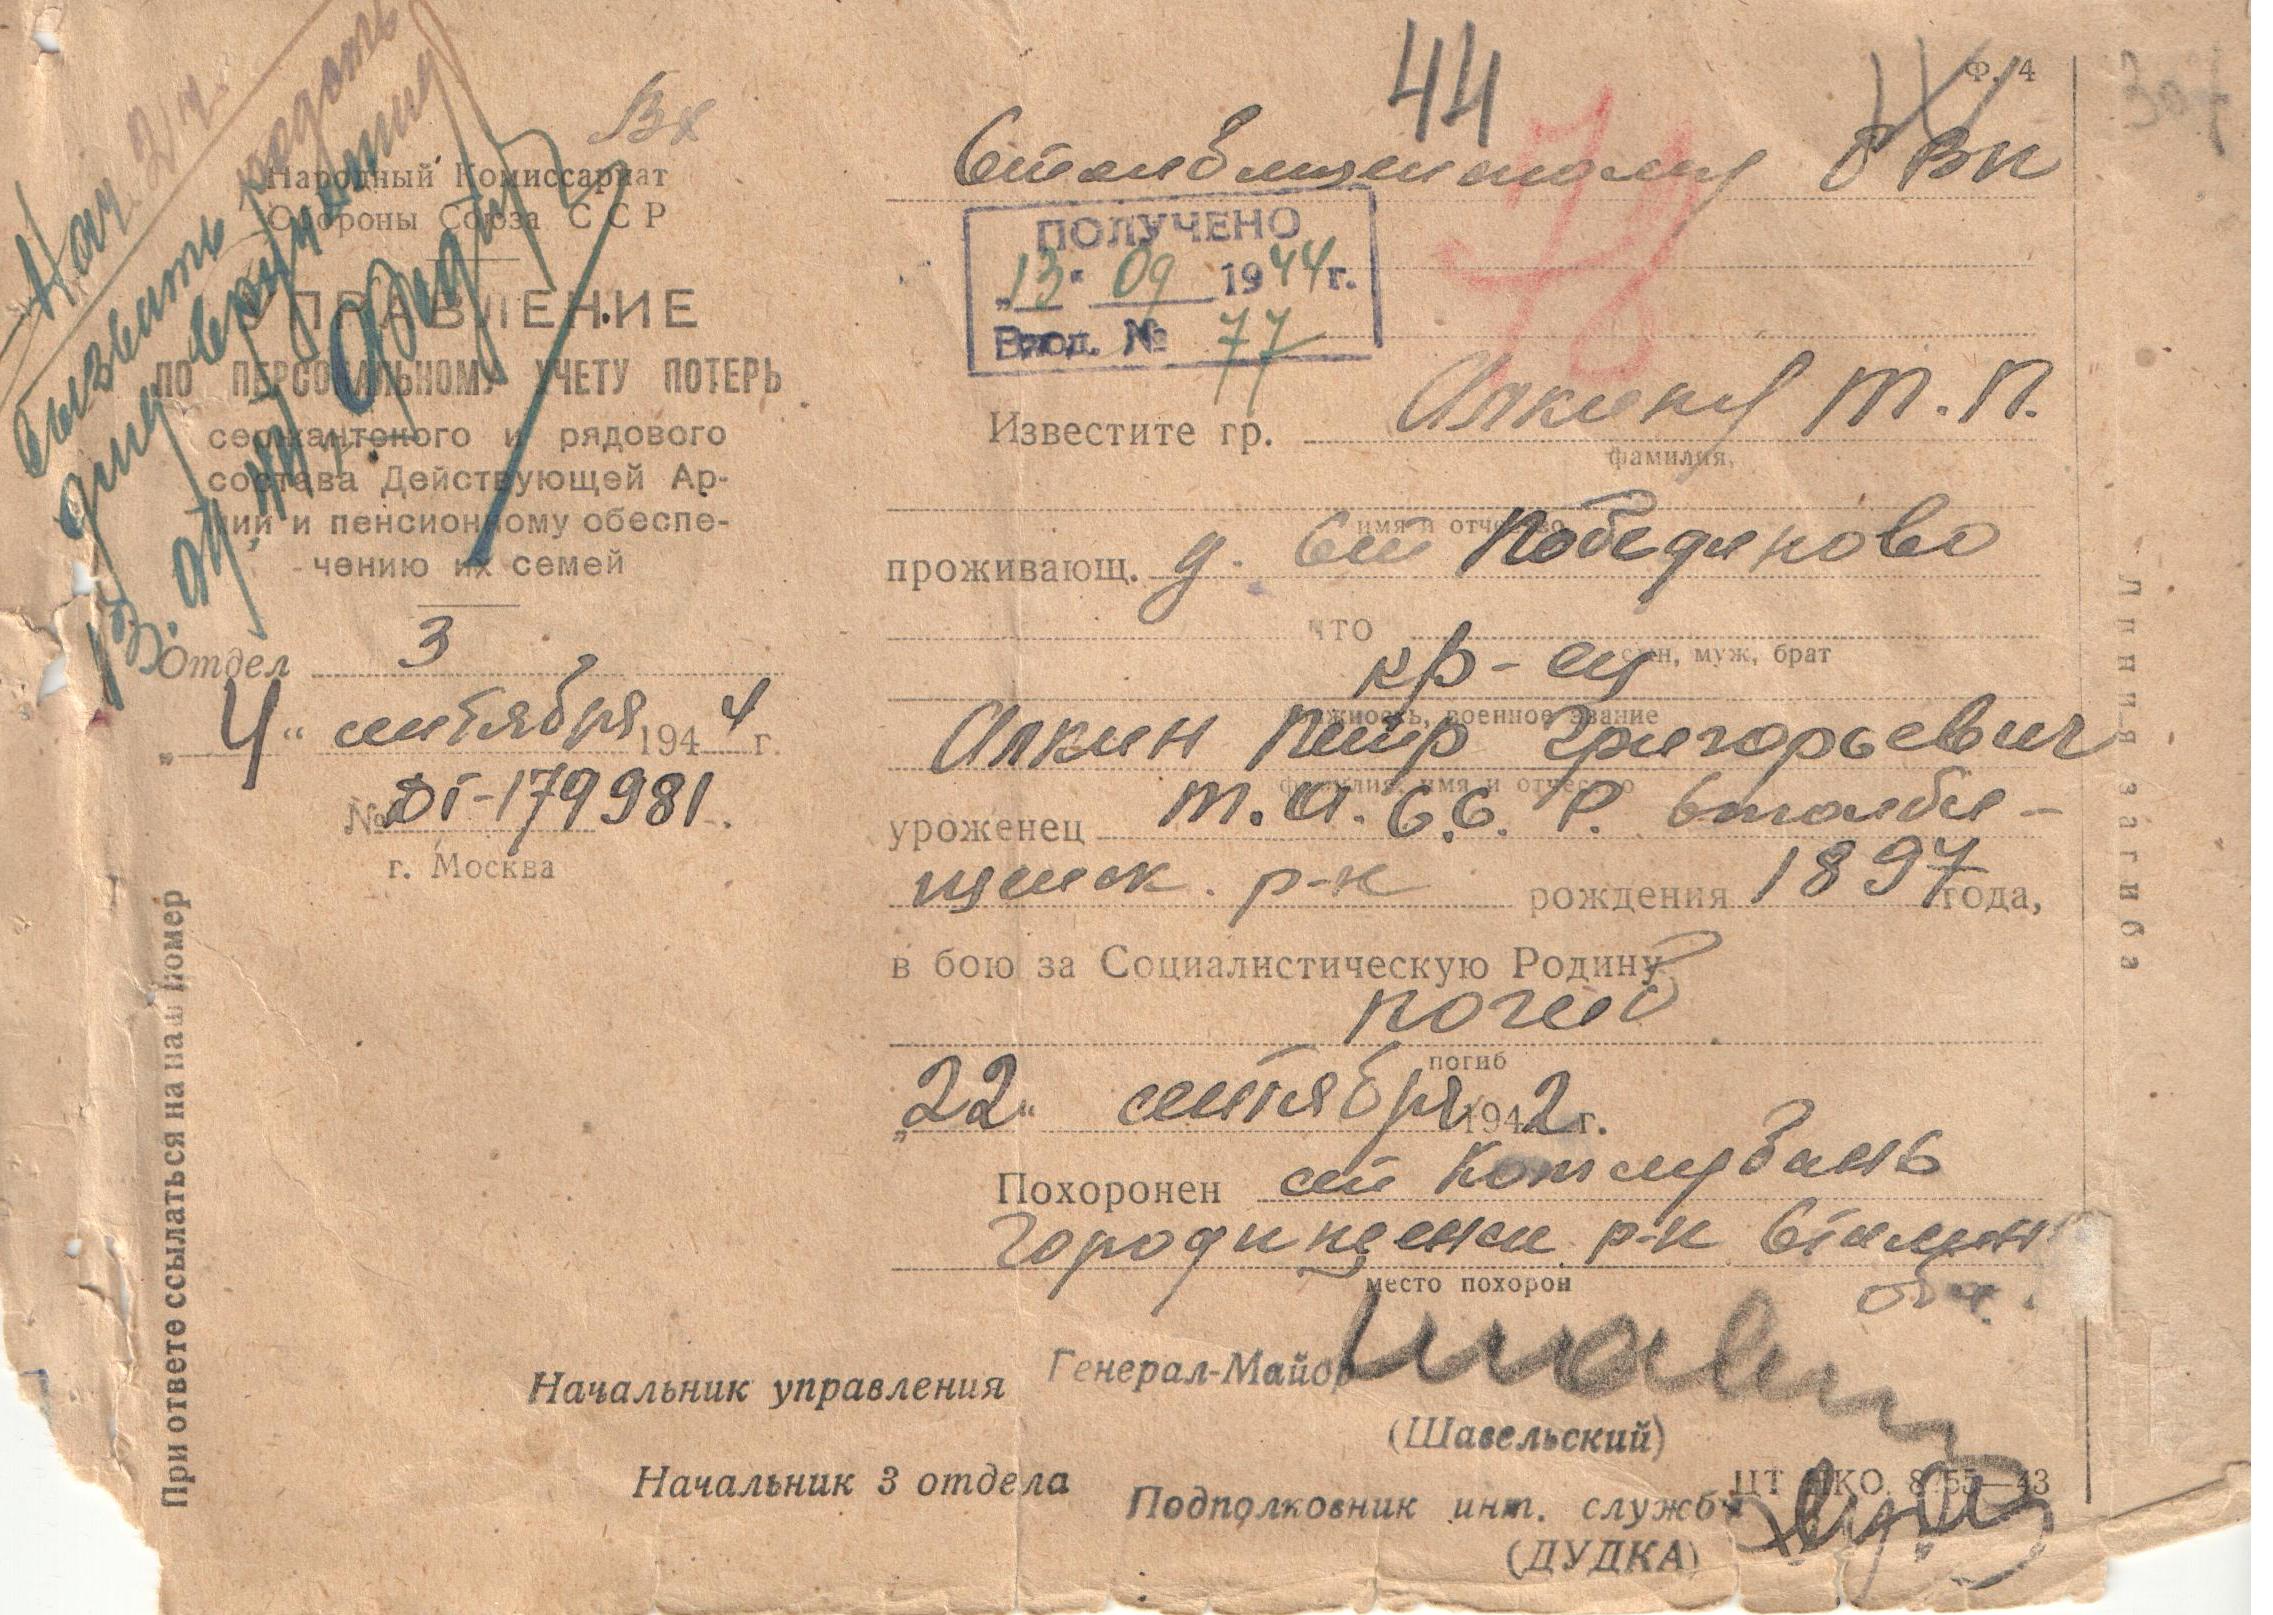 44
Ф. 4
307
Вх
Народный Комиссариат
Обороны Союза ССР
УПРАВЛЕНИЕ
ПО ПЕРСОНАЛЬНОМУ УЧЕТУ ПОТЕРЬ
сержантского и рядового
состава Действующей Ар-
мии и пенсионному обеспе-
чению их семей
Отдел 3
„4" сентября 1944 г.
№ 179981
г. Москва
При ответе ссылаться на наш номер
Нач. 2 ч.
Вызвать
для вручения
РВК
ПОЛУЧЕНО
„13" 09 1944 г.
Вход. № 77
78
Известите гр. Алкину Т. П.
фамилия,
имя и отчество
проживающ. д. Ст Победилово
что
сын, муж, брат
кр-ец
должность, военное звание
Алкин Петр Григорьевич
фамилия, имя и отчество
уроженец Т.А.С.С.Р. Столби-
щенск. р-н рождения 1897 года,
в бою за Социалистическую Родину
погиб
погиб
„22" сентября 1942 г.
Похоронен ст Котлубань
Городищенск р-н Сталин
обл.
место похорон
Начальник управления Генерал-Майор
(Шавельский)
Начальник 3 отдела
Подполковник инт. службы
(ДУДКА)
ЦТ НКО 8155—43
Линия загиба